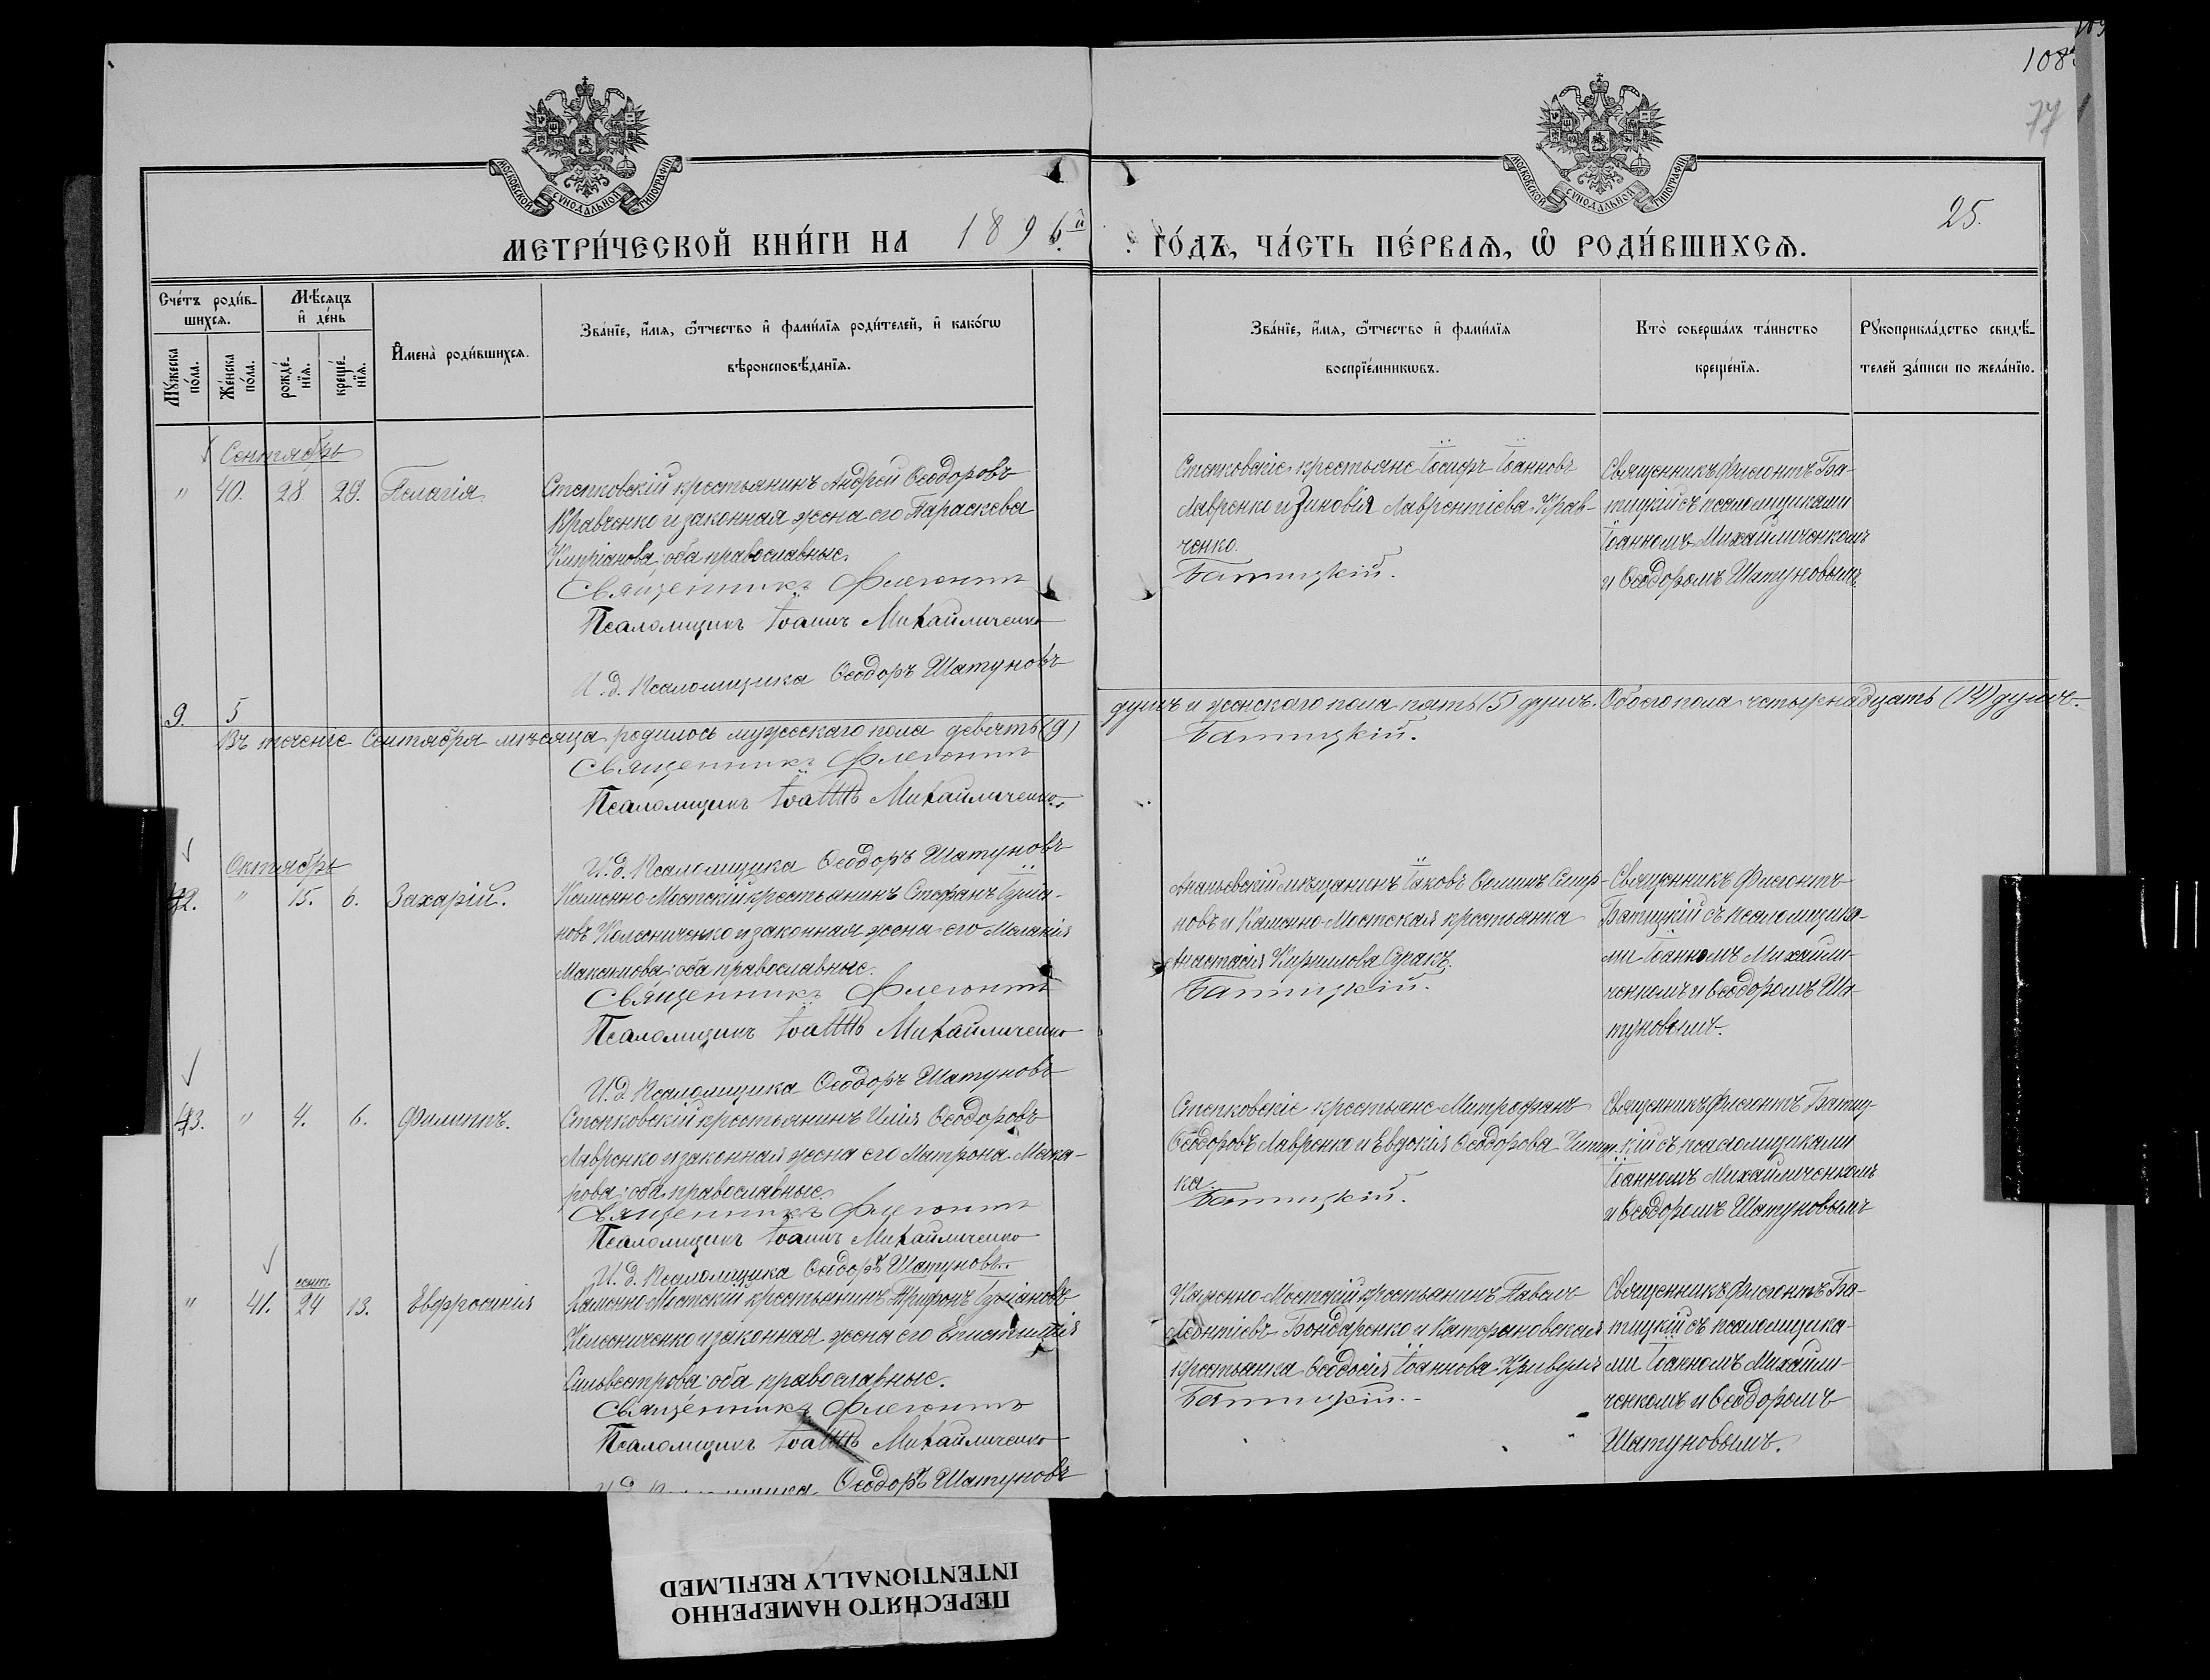 108
77
25.
МОСКОВСКОЙ СѴНОДАЛЬНОЙ ТИПОГРАФІИ
МОСКОВСКОЙ СѴНОДАЛЬНОЙ ТИПОГРАФІИ
МЕТРИ́ЧЕСКОЙ КНИ́ГИ НА 1896й
ГО́ДЪ, ЧА́СТЬ ПЕ́РВАѦ, Ѡ҆ РОДИ́ВШИХСѦ.
Сче́тъ роди́в-
шихсѧ.
Мѣ́сѧцъ
и҆ де́нь
Мꙋ́жеска
по́ла.
Же́нска
по́ла.
рожде́-
нїѧ.
креще́-
нїѧ.
И҆мена̀ роди́вшихсѧ.
Зва́нїе, и҆́мѧ, ѻ҆́тчество и҆ фами́лїѧ роди́телей, и҆ како́гѡ
вѣроисповѣ́данїѧ.
Зва́нїе, и҆́мѧ, ѻ҆́тчество и҆ фами́лїѧ
воспрїе́мникѡвъ.
Кто̀ соверша́лъ та́инство
креще́нїѧ.
Рꙋкоприкла́дство свидѣ́-
телей за́писи по жела́нїю.
Сентябрь
" 40. 28. 29. Пелагія
Степковскій крестьянинъ Андрей Ѳеодоровъ
Кравченко и законная жена его Параскева
Кипріанова; оба православные.
Священникъ Флегонтъ
Псаломщикъ Іоаннъ Михайличенко
И. д. Псаломщика Ѳеодоръ Шатуновъ
Степковскіе крестьяне Іосифъ Іоанновъ
Лавренко и Зиновія Лаврентіева Крав-
ченко.
Батицкій.
Священникъ Флегонтъ Ба-
тицкій съ псаломщиками
Іоанномъ Михайличенкомъ
и Ѳеодоромъ Шатуновымъ
9. 5
Въ теченіе Сентября мѣсяца родилось мужескаго пола девять (9)
душъ и женскаго пола пять (5) душъ. Обоего пола четырнадцать (14) душъ.
Священникъ Флегонтъ
Батицкій.
Псаломщикъ Іоаннъ Михайличенко
И. д. Псаломщика Ѳеодоръ Шатуновъ
Октябрь
42. " 15. 6. Захарій.
Каменно-Мостскій крестьянинъ Стефанъ
новъ Колесниченко и законная жена его Меланія
Максимова; оба православные.
Священникъ Флегонтъ
Псаломщикъ Іоаннъ Михайличенко
И. д. Псаломщика Ѳеодоръ Шатуновъ
Ананьевскій мѣщанинъ Іаковъ
новъ и Каменно-Мостская крестьянка
Анастасія Кириллова
Батицкій.
Священникъ Флегонтъ
Батицкій съ псаломщика-
ми Іоанномъ Михайли-
ченкомъ и Ѳеодоромъ Ша-
туновымъ.
43. " 4. 6. Филиппъ.
Степковскій крестьянинъ Илія Ѳеодоровъ
Лавренко и законная жена его Матрона Мака-
рова; оба православные.
Священникъ Флегонтъ
Псаломщикъ Іоаннъ Михайличенко
И. д. Псаломщика Ѳеодоръ Шатуновъ
Степковскіе крестьяне Митрофанъ
Ѳеодоровъ Лавренко и Евдокія Ѳеодорова
ка.
Батицкій.
Священникъ Флегонтъ Батиц-
кій съ псаломщиками
Іоанномъ Михайличенкомъ
и Ѳеодоромъ Шатуновымъ
сент.
" 41. 24 13. Евфросинія
Каменно-Мостскій крестьянинъ Трифонъ
Колесниченко и законная жена его Епистимія
Сильвестрова; оба православные.
Священникъ Флегонтъ
Псаломщикъ Іоаннъ Михайличенко
И. д. Псаломщика Ѳеодоръ Шатуновъ
Каменно-Мостскій крестьянинъ Павелъ
Леонтіевъ Бондаренко и Катериновская
крестьянка Ѳеодосія Іоаннова
Батицкій.
Священникъ Флегонтъ Ба-
тицкій съ псаломщика-
ми Іоанномъ Михайли-
ченкомъ и Ѳеодоромъ
Шатуновымъ.
ПЕРЕСНЯТО НАМЕРЕННО
INTENTIONALLY REFILMED